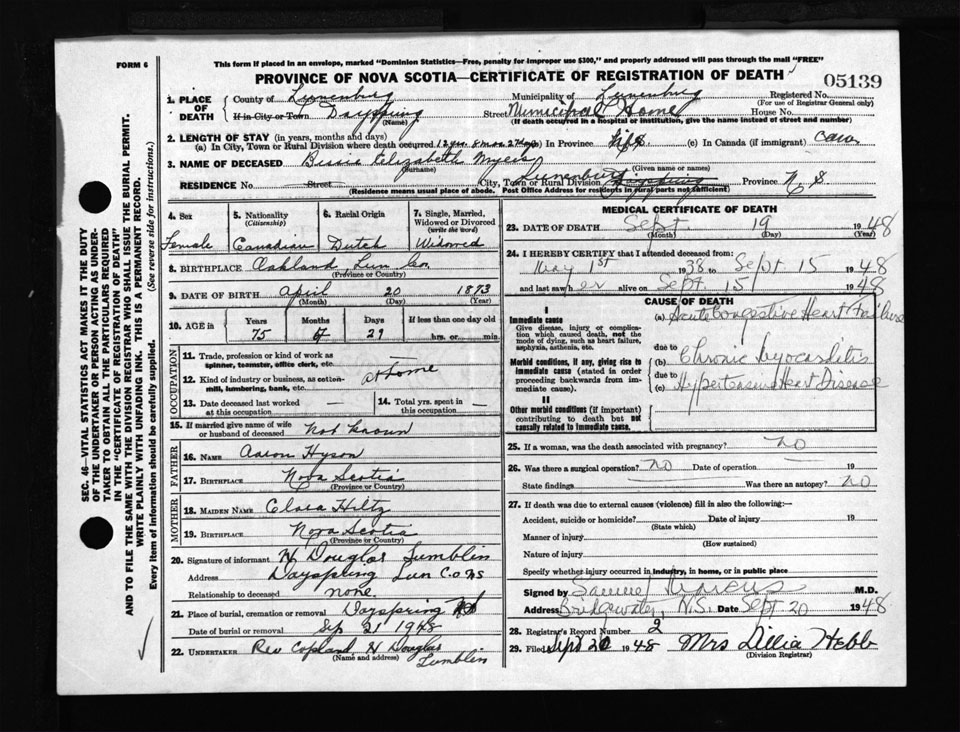 This form if placed in an envelope, marked "Dominion Statistics—Free, penalty for improper use $300," and properly addressed will pass through the mail "FREE"
FORM 6
PROVINCE OF NOVA SCOTIA—CERTIFICATE OF REGISTRATION OF DEATH
05139
1. PLACE OF DEATH
County of Lunenburg Municipality of Lunenburg Registered No.
(For use of Registrar General only)
If in City or Town Dayspring Street Municipal Home House No.
(Name) (If death occurred in a hospital or institution, give the name instead of street and number)
2. LENGTH OF STAY (in years, months and days)
(a) In City, Town or Rural Division where death occurred 12 yrs. 8 mos. 2 days In Province life (c) In Canada (if immigrant)
3. NAME OF DECEASED Bessie Elizabeth Myers
(Surname) (Given name or names)
RESIDENCE No. Street City, Town or Rural Division Lunenburg Dayspring Province N.S
(Residence means usual place of abode. Post Office Address for residents in rural parts not sufficient)
4. Sex Female
5. Nationality (Citizenship) Canadian
6. Racial Origin Dutch
7. Single, Married, Widowed or Divorced (write the word) Widowed
8. BIRTHPLACE Oakland Lun Co.
(Province or Country)
9. DATE OF BIRTH April 20 1873
(Month) (Day) (Year)
10. AGE in Years Months Days If less than one day old
75 29 hrs. or min.
OCCUPATION
11. Trade, profession or kind of work as spinner, teamster, office clerk, etc.
12. Kind of industry or business, as cotton-mill, lumbering, bank, etc. at home
13. Date deceased last worked at this occupation —
14. Total yrs. spent in this occupation —
15. If married give name of wife or husband of deceased Not Known
FATHER
16. NAME Aaron Hyson
17. BIRTHPLACE Nova Scotia
(Province or Country)
MOTHER
18. MAIDEN NAME Clara Hiltz
19. BIRTHPLACE Nova Scotia
(Province or Country)
20. Signature of informant N Douglas Tumblin
Address Dayspring Lun Co NS
Relationship to deceased none.
21. Place of burial, cremation or removal Dayspring NS
Date of burial or removal Sep 21 1948
22. UNDERTAKER Rev Copland, N Douglas Tumblin
(Name and address)
MEDICAL CERTIFICATE OF DEATH
23. DATE OF DEATH Sept. 19 1948
(Month) (Day) (Year)
24. I HEREBY CERTIFY that I attended deceased from:
May 1st 1938 to Sept 15 1948
and last saw her alive on Sept. 15 1948
CAUSE OF DEATH
I
Immediate cause
Give disease, injury or complication which caused death, not the mode of dying, such as heart failure, asphyxia, asthenia, etc.
(a) Acute Congestive Heart Failure
due to
Morbid conditions, if any, giving rise to immediate cause (stated in order proceeding backwards from immediate cause).
(b) Chronic Myocarditis
due to
(c) Hypertensive Heart Disease
II
Other morbid conditions (if important) contributing to death but not causally related to immediate cause.
25. If a woman, was the death associated with pregnancy? no
26. Was there a surgical operation? no Date of operation 19
State findings Was there an autopsy? no
27. If death was due to external causes (violence) fill in also the following:—
Accident, suicide or homicide? Date of injury 19
(State which)
Manner of injury
(How sustained)
Nature of injury
Specify whether injury occurred in industry, in home, or in public place
Signed by Samuel Marcus M.D.
Address Bridgewater, N.S. Date Sept 20 1948
28. Registrar's Record Number 2
29. Filed Sept 20 1948 Mrs Lillia Hebb
(Division Registrar)
SEC. 46—VITAL STATISTICS ACT MAKES IT THE DUTY
OF THE UNDERTAKER OR PERSON ACTING AS UNDER-
TAKER TO OBTAIN ALL THE PARTICULARS REQUIRED
IN THE "CERTIFICATE OF REGISTRATION OF DEATH"
AND TO FILE THE SAME WITH THE DIVISION REGISTRAR WHO SHALL ISSUE THE BURIAL PERMIT.
WRITE PLAINLY WITH UNFADING INK. THIS IS A PERMANENT RECORD.
Every item of information should be carefully supplied. (See reverse side for instructions.)